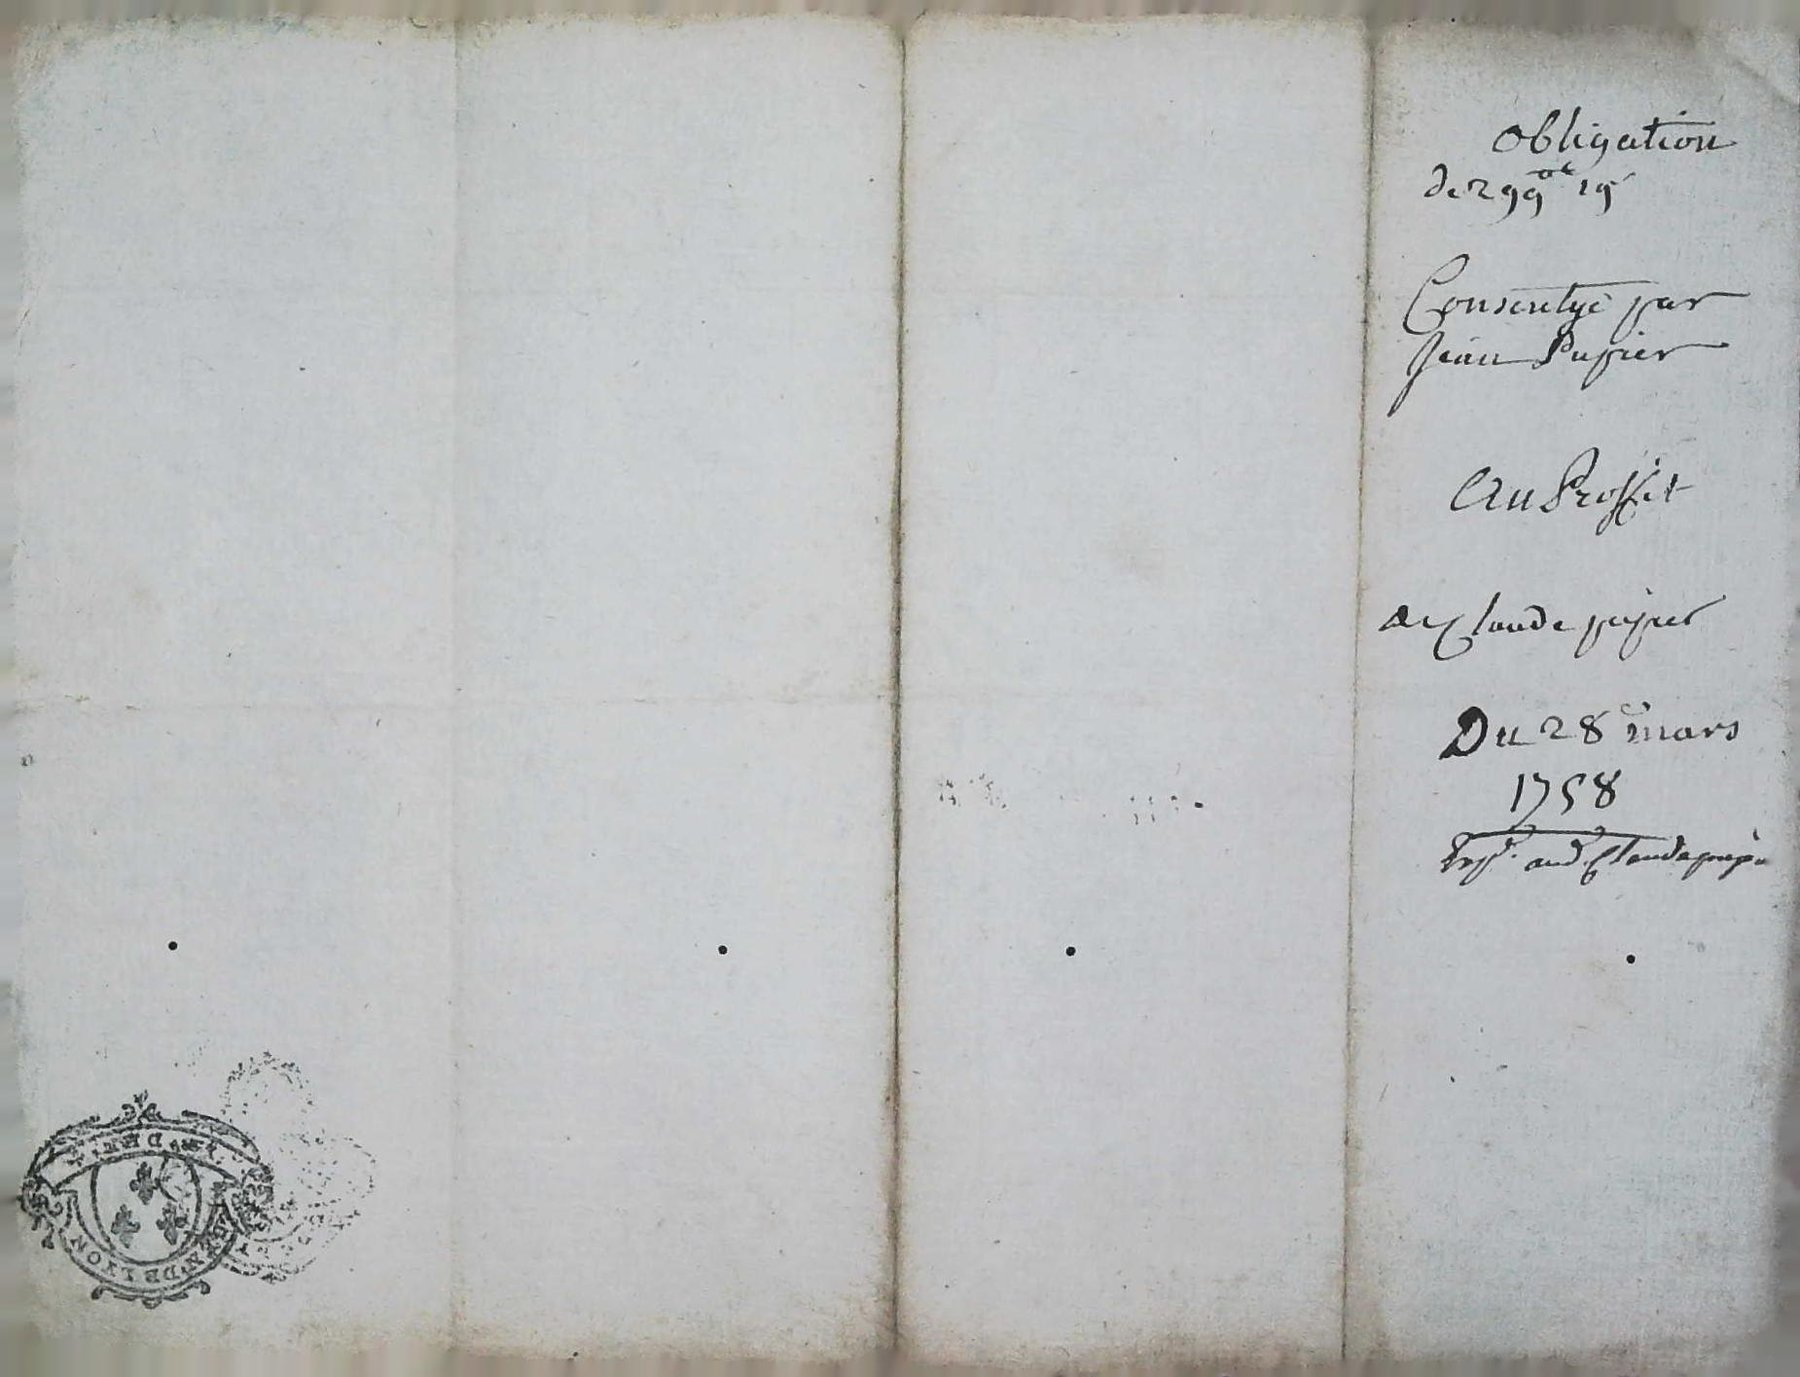 Obligation
de 299lt 19s
Consentye par
Jean Pupier
Au Proffit
de Claude pupier
Du 28 mars
1758
Expd. aud. Claude pupier
GEN. DE LYON